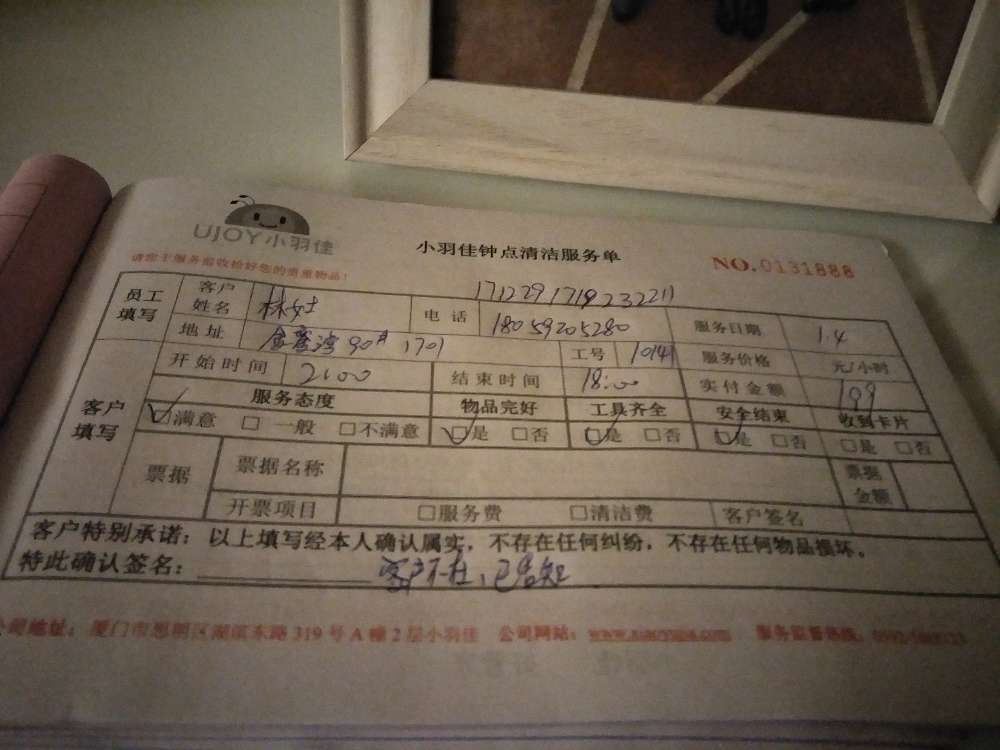 UJOY小羽佳
小羽佳钟点清洁服务单
NO.0131888
请您于服务前收拾好您的贵重物品！
1712291719232211
员工填写 客户姓名 林女士 电话 18059205280 服务日期 1.4
地址 90 1701 工号 10141 服务价格 元/小时
客户填写 开始时间 21:00 结束时间 18:00 实付金额 199
服务态度 物品完好 工具齐全 安全结束 收到卡片
☑满意 □一般 □不满意 ☑是 □否 ☑是 □否 ☑是 □否 □是 □否
票据 票据名称 票据金额
开票项目 □服务费 □清洁费 客户签名
客户特别承诺：以上填写经本人确认属实，不存在任何纠纷，不存在任何物品损坏。
特此确认签名： 客户不在，已告知
公司地址：厦门市思明区湖滨东路319号A幢2层小羽佳 公司网站： 服务监督热线：